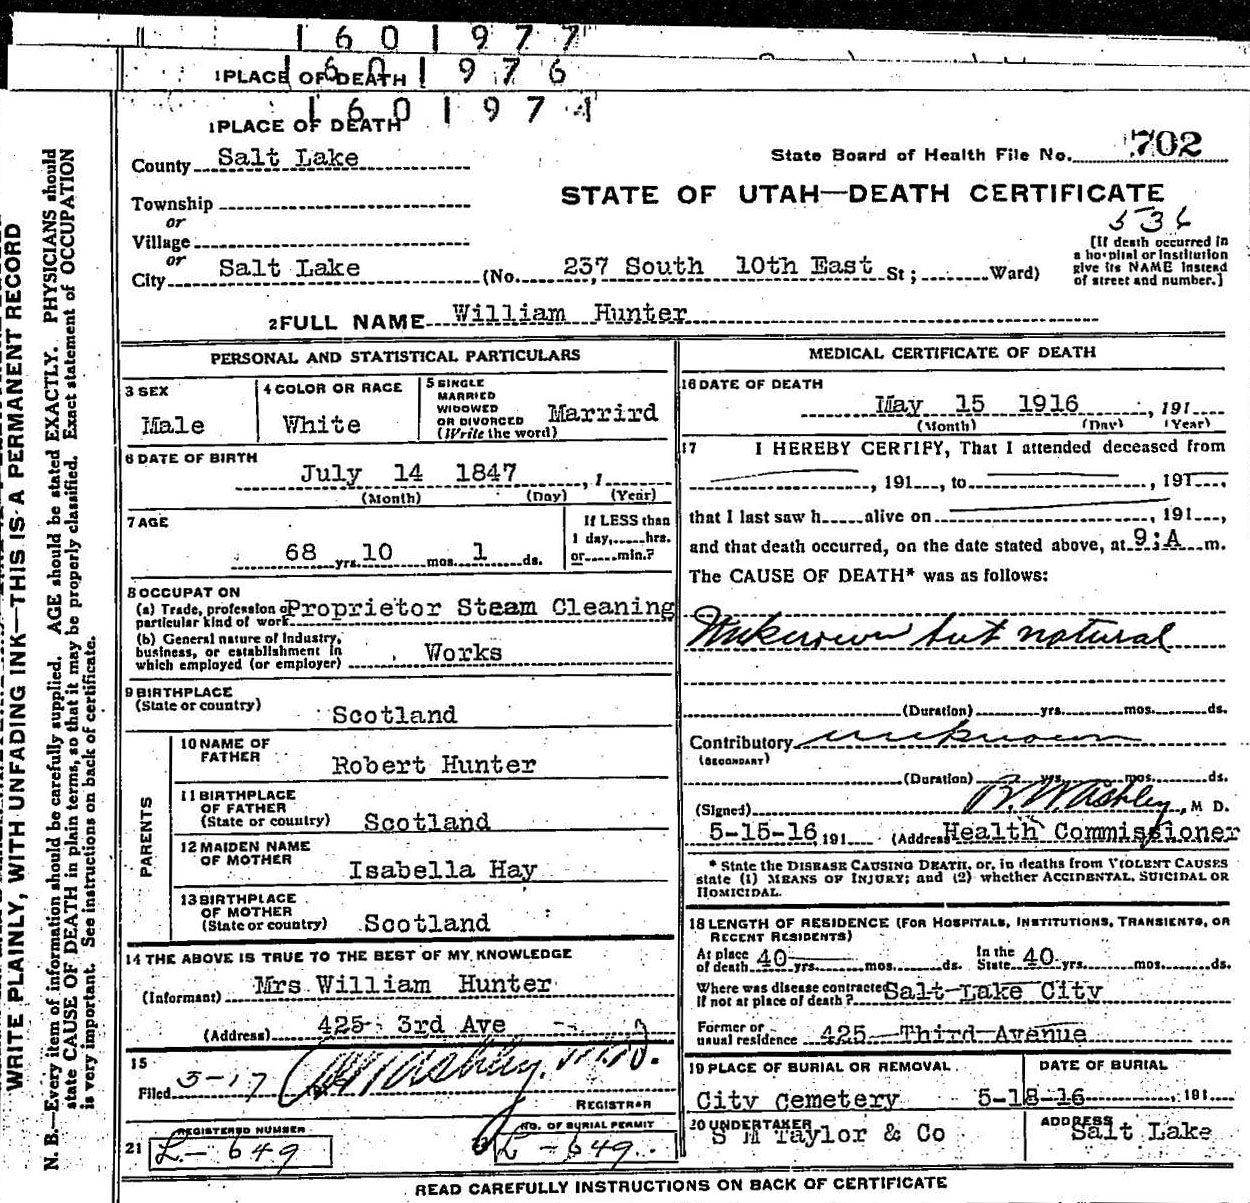 1601977
1601976
1 PLACE OF DEATH
1601974
1 PLACE OF DEATH
County Salt Lake
State Board of Health File No. 702
STATE OF UTAH—DEATH CERTIFICATE
536
Township
or
Village
or
City Salt Lake (No. 237 South 10th East St; Ward)
[If death occurred in
a hospital or institution
give its NAME instead
of street and number.]
2 FULL NAME William Hunter
PERSONAL AND STATISTICAL PARTICULARS
3 SEX
Male
4 COLOR OR RACE
White
5 SINGLE
MARRIED
WIDOWED
OR DIVORCED
(Write the word)
Marrird
6 DATE OF BIRTH
July 14 1847, 1
(Month) (Day) (Year)
7 AGE
68 yrs. 10 mos. 1 ds.
If LESS than
1 day, hrs.
or min.?
8 OCCUPAT ON
(a) Trade, profession o Proprietor Steam Cleaning
particular kind of work
(b) General nature of Industry,
business, or establishment in
which employed (or employer) Works
9 BIRTHPLACE
(State or country) Scotland
PARENTS
10 NAME OF
FATHER
Robert Hunter
11 BIRTHPLACE
OF FATHER
(State or country) Scotland
12 MAIDEN NAME
OF MOTHER
Isabella Hay
13 BIRTHPLACE
OF MOTHER
(State or country) Scotland
14 THE ABOVE IS TRUE TO THE BEST OF MY KNOWLEDGE
(Informant) Mrs William Hunter
(Address) 425 3rd Ave
15
Filed 5-17 Ashley, M.D.
REGISTRAR
21 REGISTERED NUMBER
L-649
NO. OF BURIAL PERMIT
L-649
MEDICAL CERTIFICATE OF DEATH
16 DATE OF DEATH
May 15 1916, 191
(Month) (Day) (Year)
17 I HEREBY CERTIFY, That I attended deceased from
, 191 , to , 191 ,
that I last saw h alive on , 191 ,
and that death occurred, on the date stated above, at 9;A m.
The CAUSE OF DEATH* was as follows:
Unknown but natural
(Duration) yrs. mos. ds.
Contributory unknown
(SECONDARY)
(Duration) yrs. mos. ds.
(Signed) Ashley, M D.
5-15-16, 191 (Address Health Commissioner
* State the DISEASE CAUSING DEATH, or, in deaths from VIOLENT CAUSES
state (1) MEANS OF INJURY; and (2) whether ACCIDENTAL, SUICIDAL OR
HOMICIDAL.
18 LENGTH OF RESIDENCE (FOR HOSPITALS, INSTITUTIONS, TRANSIENTS, OR
RECENT RESIDENTS)
At place
of death 40 yrs. mos. ds.
In the
State 40 yrs. mos. ds.
Where was disease contracte
if not at place of death? Salt Lake City
Former or
usual residence 425 Third Avenue
19 PLACE OF BURIAL OR REMOVAL
City Cemetery
DATE OF BURIAL
5-18-16, 191
20 UNDERTAKER
S M Taylor & Co
ADDRESS
Salt Lake
READ CAREFULLY INSTRUCTIONS ON BACK OF CERTIFICATE
WRITE PLAINLY, WITH UNFADING INK—THIS IS A PERMANENT RECORD
N. B.—Every item of information should be carefully supplied. AGE should be stated EXACTLY. PHYSICIANS should
state CAUSE OF DEATH in plain terms, so that it may be properly classified. Exact statement of OCCUPATION
is very important. See instructions on back of certificate.